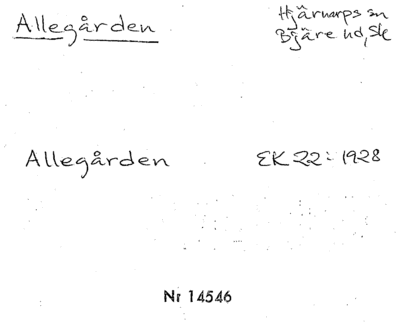 Allegården
Hjärnarps sn
Bjäre hd, Sk
Allegården EK 22: 1928
Nr 14546